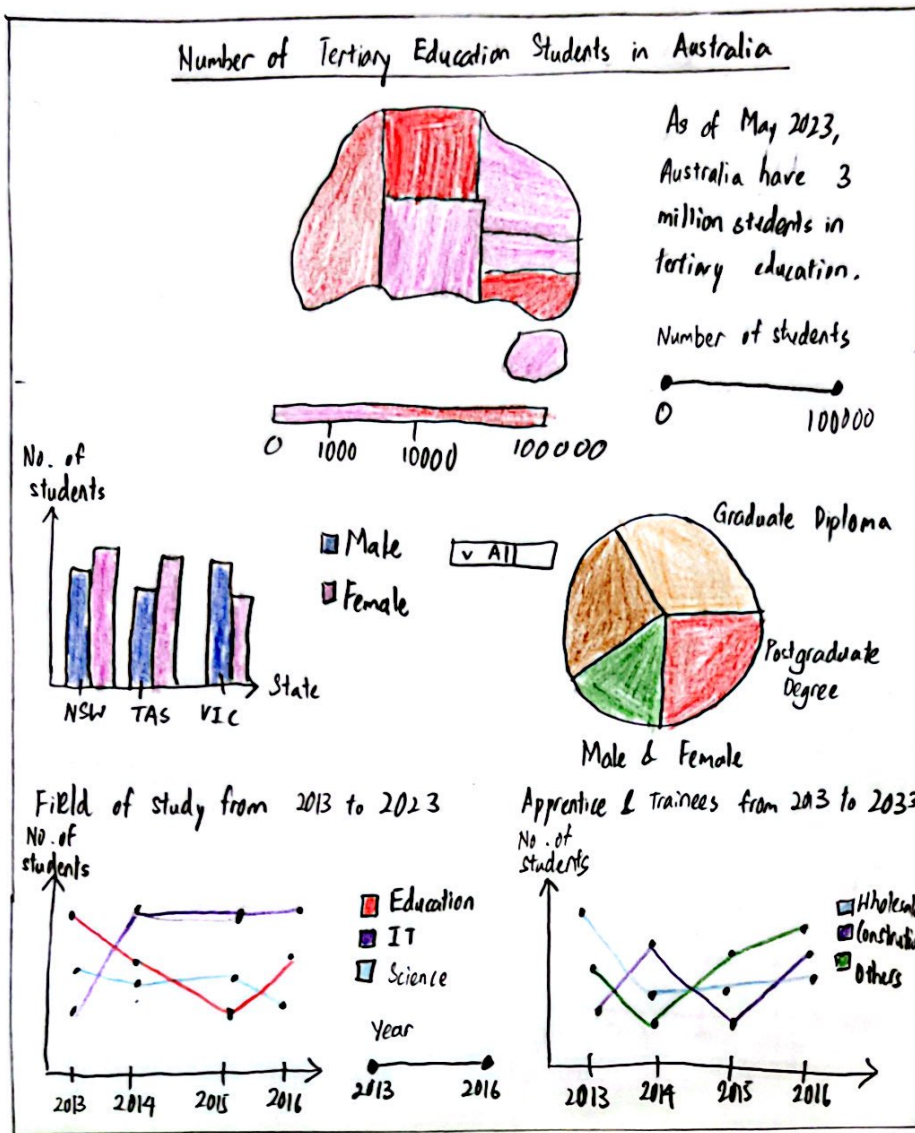 Number of Tertiary Education Students in Australia
As of May 2023,
Australia have 3
million students in
tertiary education.
Number of students
0 100000
0 1000 10000 100000
No. of
students
Male
Female
v All
NSW TAS VIC
State
Graduate Diploma
Postgraduate
Degree
Male & Female
Field of study from 2013 to 2023
No. of
students
Education
IT
Science
Year
2013 2016
2013 2014 2015 2016
Apprentice & Trainees from 2013 to 2033
No. of
students
Wholesal
Constructi
Others
2013 2014 2015 2016